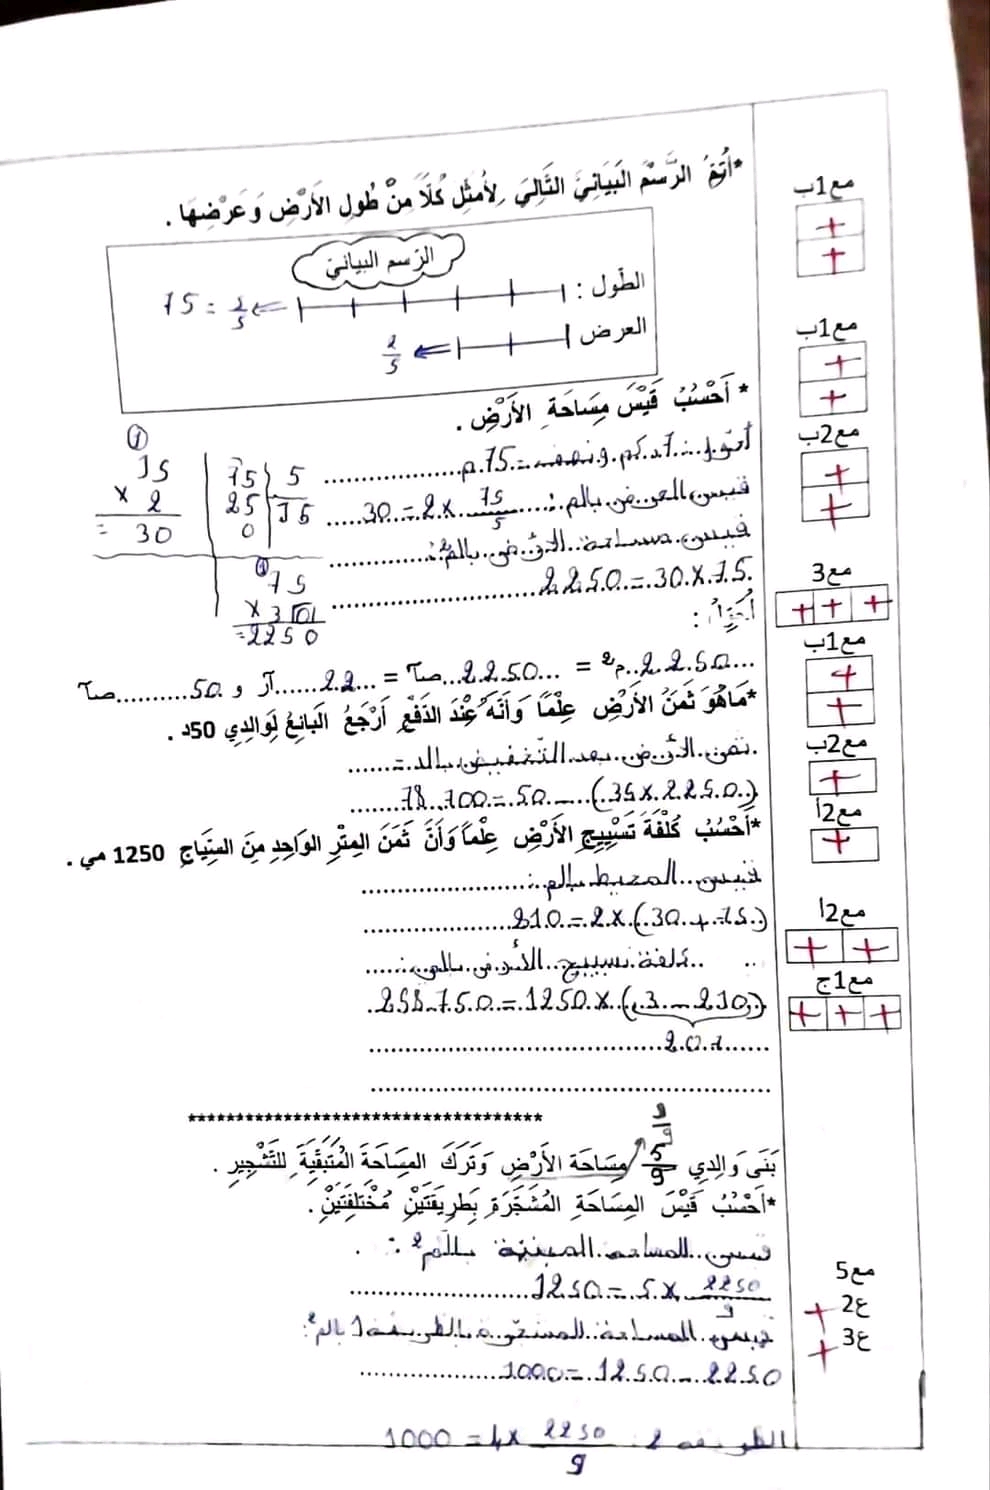 *أُتِمُّ الرَّسْمَ البَيَانِيَّ التَّالِيَ لِأُمَثِّلَ كُلًّا مِنْ طُولِ الأَرْضِ وَعَرْضِهَا .
الرّسم البياني
الطّول :
75 =
العرض :
2/5
* أَحْسُبُ قَيْسَ مِسَاحَةِ الأَرْضِ .
75 م
قيس العرض بالم :
75/5 × 2 = 30
قيس مساحة الأرض بالم² :
75 × 30 = 2250
15
× 2
= 30
75 5
25 15
0
75
× 30
= 2250
2250 م² = 2250 صآ = 22 آر و 50 صآ
*مَا هُوَ ثَمَنُ الأَرْضِ عِلْمًا وَأَنَّهُ عِنْدَ الدَّفْعِ أَرْجَعَ البَائِعُ لِوَالِدِي 50د .
ثمن الأرض بعد التخفيض بالد :
(35 × 2250) - 50 = 78 700
*أَحْسُبُ كُلْفَةَ تَسْيِيجِ الأَرْضِ عِلْمًا وَأَنَّ ثَمَنَ المِتْرِ الوَاحِدِ مِنَ السِّيَاجِ 1250 مي .
قيس المحيط بالم :
(75 + 30) × 2 = 210
كلفة تسييج الأرض بالمي :
(210 - 3) × 1250 = 258 750
207
***********************************
بَنَى وَالِدِي 5/9 مِسَاحَةَ الأَرْضِ وَتَرَكَ المِسَاحَةَ المُتَبَقِّيَةَ لِلتَّشْجِيرِ .
*أَحْسُبُ قَيْسَ المِسَاحَةِ المُشَجَّرَةِ بِطَرِيقَتَيْنِ مُخْتَلِفَتَيْنِ .
قيس المساحة المبنية بالم² :
2250/9 × 5 = 1250
قيس المساحة المشجرة بالطريقة 1 بالم² :
2250 - 1250 = 1000
الطريقة 2 : 2250/9 × 4 = 1000
مع1ب
+
+
مع1ب
+
+
مع2ب
+
+
مع3
+ + +
مع1ب
+
+
مع2ب
+
مع2أ
+
مع2أ
+ +
مع1ج
+ + +
مع5
ع2 +
ع3 +